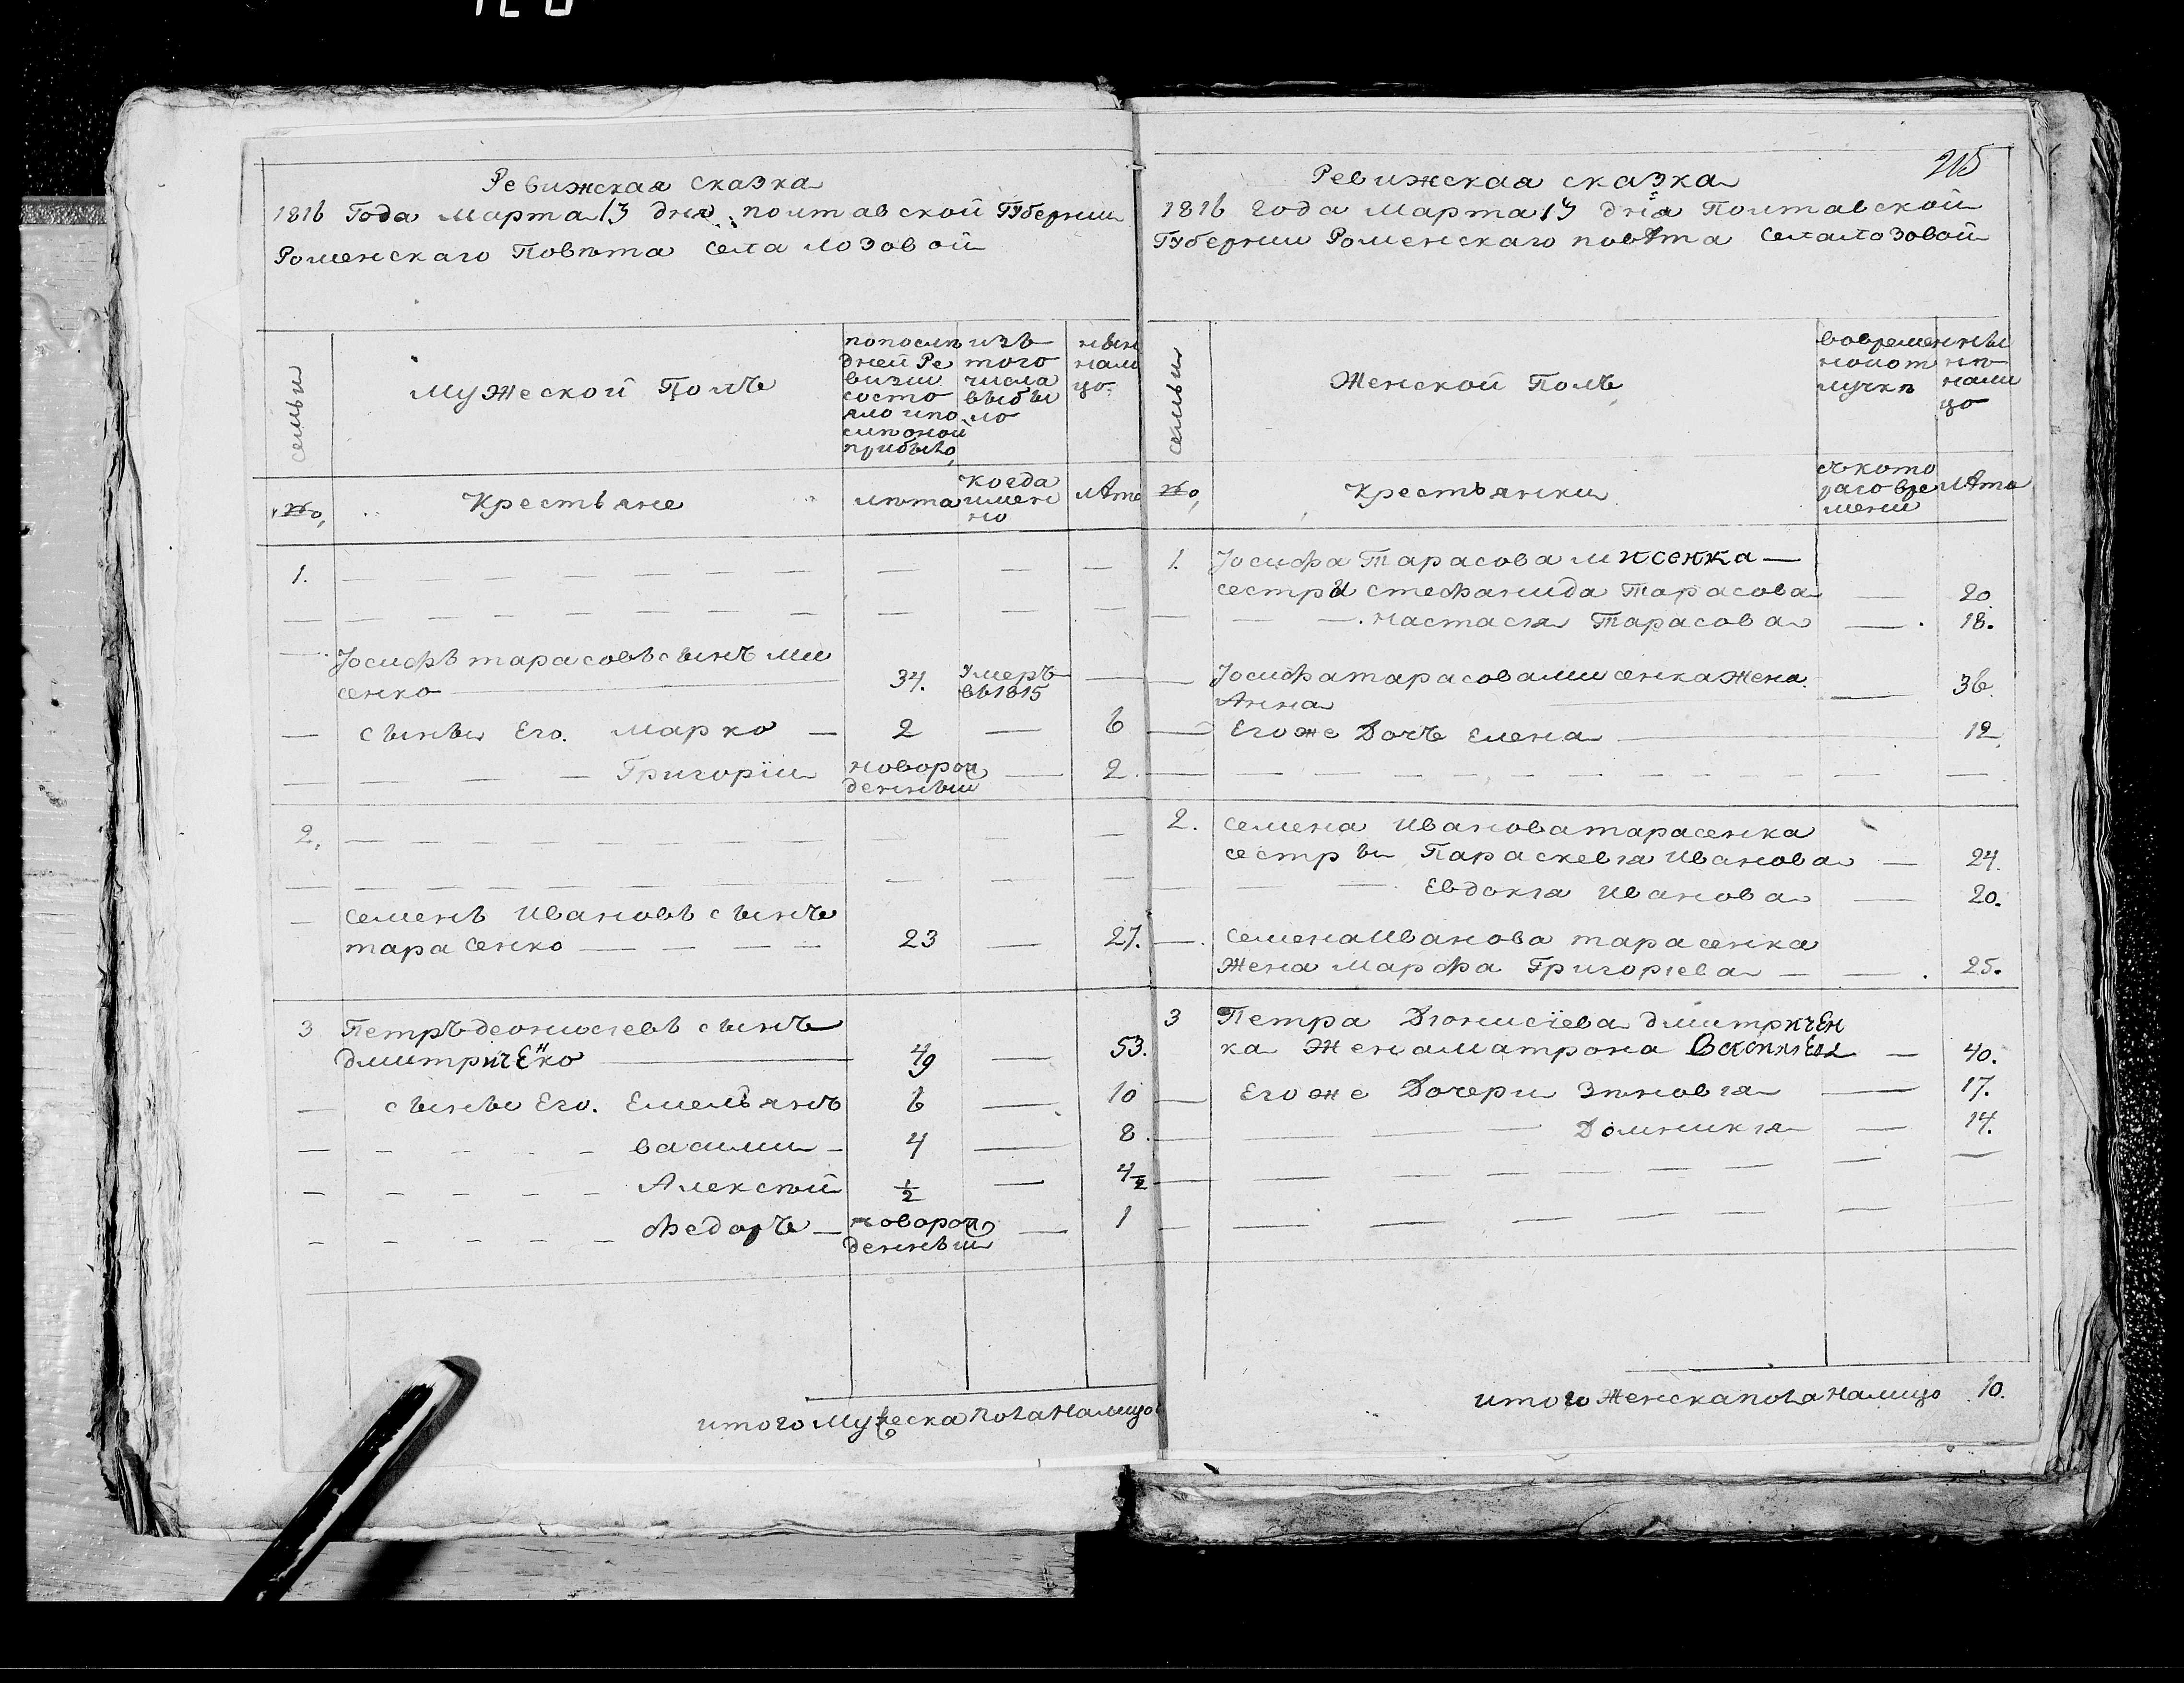 Ревижская сказка
1816 Года марта 13 дня полтавской Губернии
Роменскаго Повѣта села лозовой
семьи
Мужеской Полъ
попослѣ
дней Ре
визии
состо
яло ипо
слѣ оной
прибыло
изъ
того
числа
выбы
ло
нын
нали
цо.
№,
Крестьяне
лѣта
когда
имен
но
лѣта
1.
Іосифъ тарасовъ сынъ ми
сенко 34. Умеръ
въ 1815
сыны Его. Марко 2 6
Григории новорож
денный 2.
2.
семенъ Ивановъ сынъ
тарасенко 23 27.
3 Петръ деонисіевъ сынъ
дмитриченко 49 53.
сыны Его. Емельянъ 6 10
василии 4 8.
Алексѣй ½ 4½
Ѳедоръ новорож
денный 1
итого Мужеска пола налицо
215
Ревижская сказка
1816 года марта 13 дня Полтавской
Губернии Роменскаго повѣта села лозовой
семьи
Женской Полъ
вовремен
ной от
лучкѣ
ны
нѣ
нали
цо
№,
Крестьянки
съ кото
раго вре
мени
лѣта
1. Іосифа Тарасова мисенка
сестри стефанида Тарасова 20.
настасія Тарасова 18.
Іосифа тарасова мисенка жена
Анна 36.
Егоже Дочъ Елена 12.
2. семена Иванова тарасенка
сестры Параскевія Иванова 24.
Евдокія Иванова 20.
семена Иванова тарасенка
Жена Марфа Григоріева 25.
3 Петра Діонисіева дмитричен
ка Жена матрона 40.
Егоже Дочери Зѣновія 17.
Домникія 14.
итого Женска пола налицо 10.